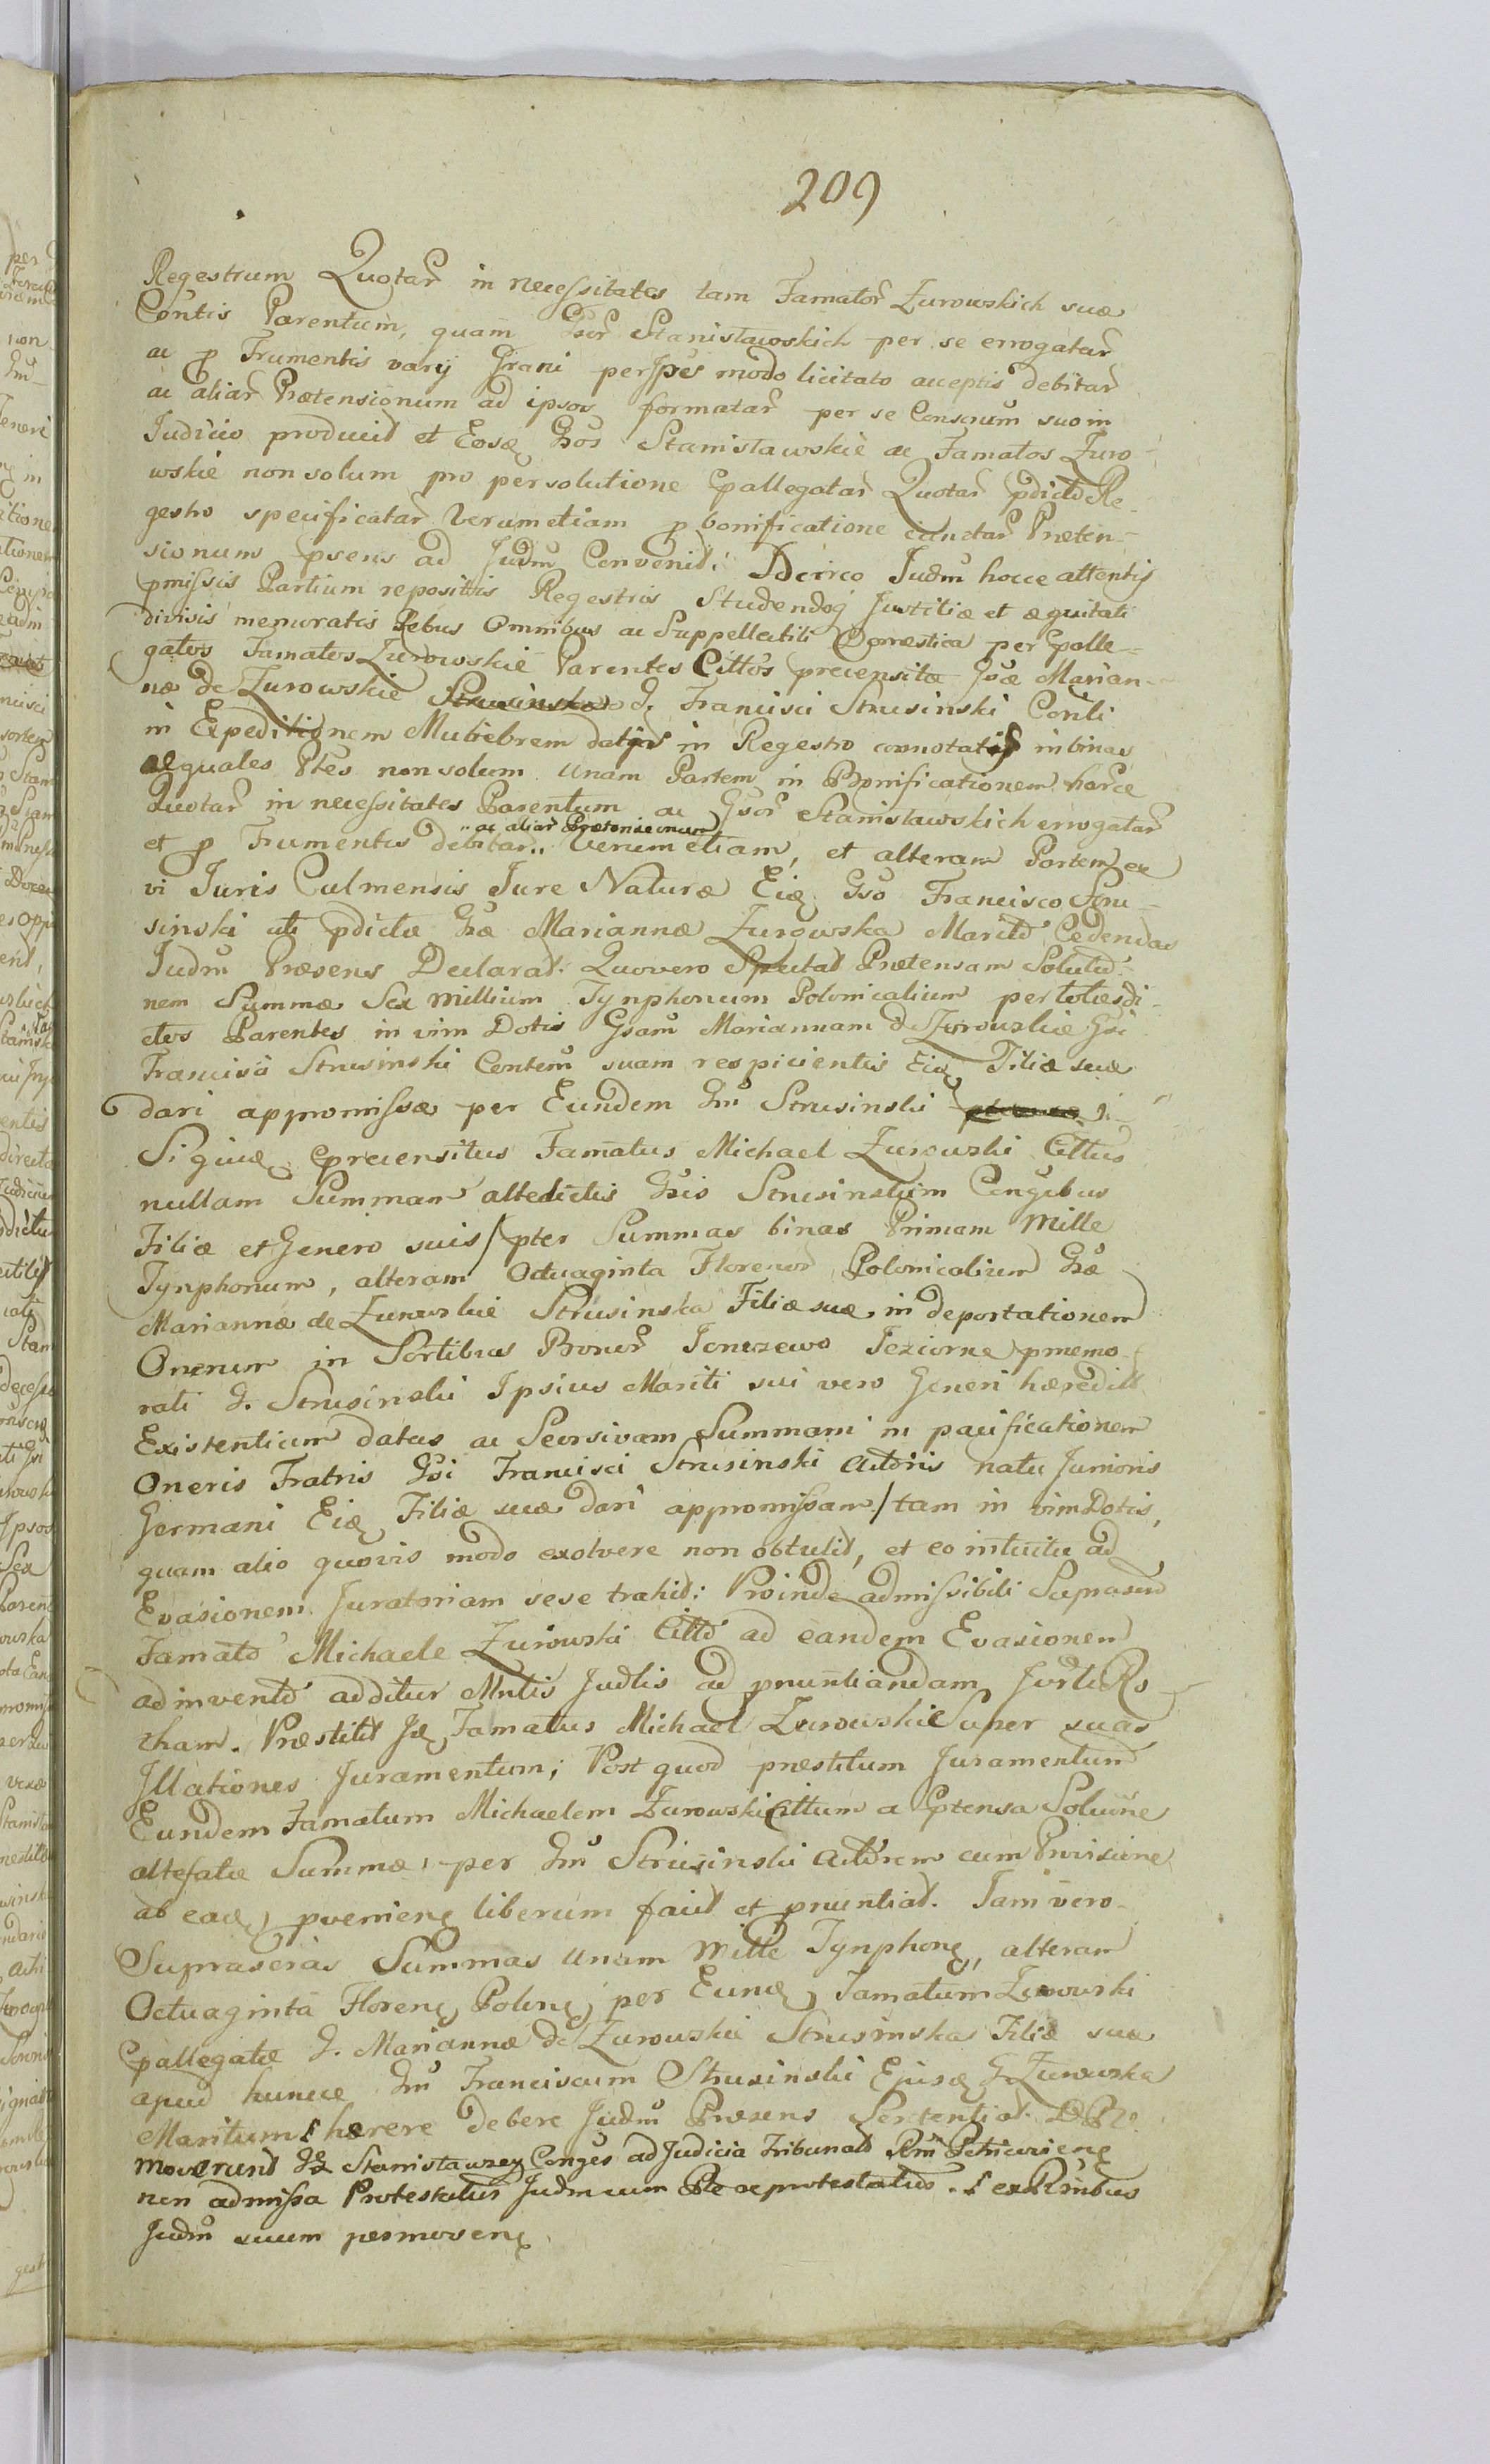 209
Regestrum Quotar in necessitates tam Famator Zurowskich suæ
Contis Parentum, quam Gsor Stanisławskich per se errogatar
ac p Frumentis varÿ Grani per Ipses modo licitato acceptis debitar
ac aliar Prætensionum ad ipsos formatar per se Conscrum suo in
Judicio producit et Eosq Gsos Stanisławskie ac Famatos Zuro-
wskie non solum pro persolutione Epallegatar Quotar pdicto Re-
gestro specificatar Verum etiam p bonificatione cunctar Præten-
sionum psens ad Judm Convenit: Iderirco Judm hocce attentis
pmissis Partium repositis Regestris Studendoq Justitiæ et æquitati
divisis memoratis Rebus Omnibus ac Suppellectili Domestica per Epalle-
gatos Famatos Zurowskie Parentes Cittos precensitæ Gsæ Marian-
næ de Zurowskie Strusinska G. Francisci Strusinski Conli
in Expeditionem Muliebrem datis in Regestro connotatis in binas
æquales Ptes non solum Unam Partem in Bonificationem harce
Quotar in necessitates Parentum ac Gsor Stanisławskich errogatar
" ac aliar Prætensionum
et p Frumentis debitar " Verum etiam, et alteram Partem ex
vi Juris Culmensis Jure Naturæ Eiq Gso Francisco Stru-
sinski uti pdictæ Gsæ Mariannæ Zurowska Marito Cedendas
Judm Præsens Declarat. Quo vero Spectat Prætensam Solutio-
nem Summæ Sex Millium Tynphonum Polonicalium per toties di-
ctos Parentes in vim Dotis Gsam Mariannam de Zurowskie Gsi
Francisci Strusinski Contem suam respicientis Eiq Filiæ suæ
dari appromissæ per Eundem Gm Strusinski
Siquid Eprecensitus Famatus Michael Zurowski Cittus
nullam Summam altedictis Gsis Strusinskim Congibus
Filiæ et Genero suis / pter Summas binas Primam Mille
Tynphonum, alteram Octuaginta Florenor Polonicalium Gsæ
Mariannæ de Zurowskie Strusinska Filiæ suæ, in deportationem
Onerum in Sortibus Bonor Tonczewo Jeziorne pmemo-
rati G. Strusinski Ipsius Mariti sui vero Generi hæredit
Existentium datas ac Seorsivam Summam in pacificationem
Oneris Fratris Gsi Francisci Strusinski Actoris natu Junioris
Germani Eiq Filiæ suæ dari appromissam / tam in vim Dotis,
quam alio quovis modo exolvere non obtulit, et eo intuitu ad
Evasionem Juratoriam sese trahit: Proinde admissibili Suprascto
Famato Michaele Zurowski Citto ad eandem Evasionem
adinvento additur Mntis Judlis ad pnuntiandam Jurti Ro-
tham. Præstitit Iq Famatus Michael Zurowski Super suas
Illationes Juramentum; Post quod præstitum Juramentum
Eundem Famatum Michaelem Zurowski Cittum a Eptensa Soluone
altefatæ Summæ, per Gm Strusinski Actorem cum Provisione
ab eaq pvenienq liberum facit et pnuntiat. Jam vero
Suprascras Summas unam Mille Tynphonq, alteram
Octuaginta Florenq Polonq per Eunq Famatum Zurowski
Epallegatæ G. Mariannæ de Zurowskie Strusinska Filiæ suæ
apud huncce Gm Franciscum Strusinski Ejusq G. Zurowska
Maritum hærere debere Judm Præsens Sententiat.
Moverunt Gs Stanisławscy Conges ad Judicia Tribunalt Rni Petricovienq
non admissa Protestatus Judm cum Pte reprotestatus. ex Rnibus
Judm suum permovenq